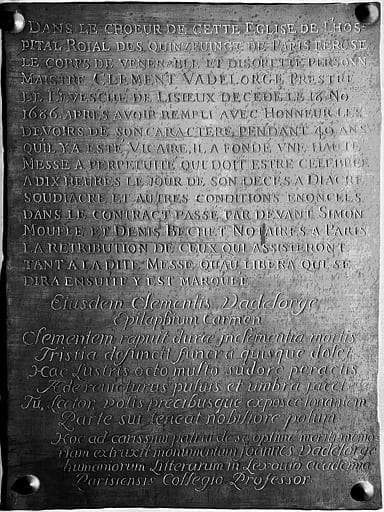 DANS LE CHOEUR DE CETTE EGLISE DE L'HOS-
PITAL ROIAL DES QUINZEUINGT DE PARIS REPOSE
LE CORPS DE VENERABLE ET DISCRETTE PERSONN
MAISTRE CLEMENT VADELORGE PRESTRE
DE L'EVESCHE DE LISIEUX DECEDE LE 18 NO
1686 APRES AVOIR REMPLI AVEC HONNEUR LES
DEVOIRS DE SON CARACTERE, PENDANT 40 ANS
QU'IL Y A ESTE VICAIRE, IL A FONDE VNE HAUTE
MESSE A PERPETUITE QUI DOIT ESTRE CELEBREE
A DIX HEURES LE JOUR DE SON DECES A DIACRE
SOUDIACRE ET AUTRES CONDITIONS ENONCEES
DANS LE CONTRACT PASSE PAR DEVANT SIMON
MOUFLE ET DENIS BECHET NOTAIRES A PARIS
LA RETRIBUTION DE CEUX QUI ASSISTERONT
TANT A LA DITE MESSE QU'AU LIBERA QUI SE
DIRA ENSUITE Y EST MARQUEE
Eiusdem Clementis Vadelorge
Epitaphium Carmen
Clementem rapuit duræ inclementia mortis
Tristia defuncti funera quisque dolet
Hoc lustris octo multo sudore peractis
Æde reuicturus puluis et umbra jacet
Tu, Lector, votis precibusque exposce
Parte sui teneat nobiliore polum
Hoc ad carissimi patrui de se optime meriti memo
riam extruxit monumentum Joannes Vadelorge
humaniorum Litterarum in Lexouio
Parisiensis Collegio Professor